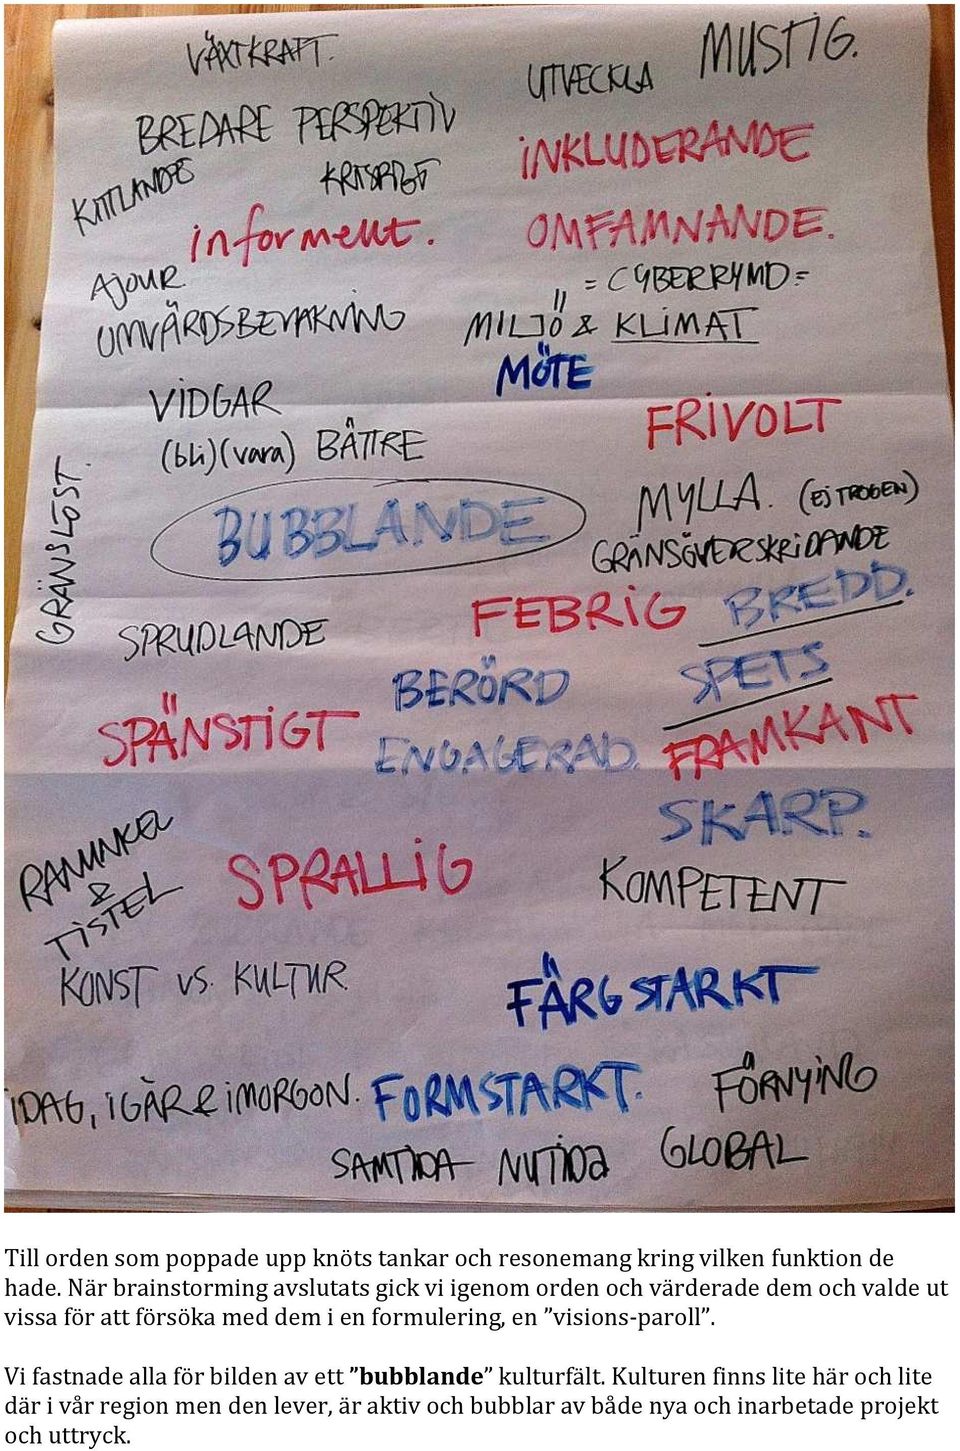 VÄXTKRAFT.
UTVECKLA
MUSTIG.
BREDARE PERSPEKTIV
INKLUDERANDE
KITTLANDE
KRISPIGT
informellt.
OMFAMNANDE.
AJOUR
= CYBERRYMD =
OMVÄRDSBEVAKNING
MILJÖ & KLIMAT
MÖTE
VIDGAR
FRIVOLT
(bli)(vara) BÄTTRE
GRÄNSLÖST.
MYLLA. (EJ TROGEN)
BUBBLANDE
GRÄNSÖVERSKRIDANDE
FEBRIG
BREDD.
SPRUDLANDE
BERÖRD
SPETS
SPÄNSTIGT
ENGAGERAD.
FRAMKANT
SKARP.
RANUNKEL
&
TISTEL
SPRALLIG
KOMPETENT
KONST VS. KULTUR
FÄRGSTARKT
IDAG, IGÅR & IMORGON.
FORMSTARKT.
FÖRNYING
SAMTIDA NUTIDA
GLOBAL
Till orden som poppade upp knöts tankar och resonemang kring vilken funktion de
hade. När brainstorming avslutats gick vi igenom orden och värderade dem och valde ut
vissa för att försöka med dem i en formulering, en ”visions-paroll”.
Vi fastnade alla för bilden av ett ”bubblande” kulturfält. Kulturen finns lite här och lite
där i vår region men den lever, är aktiv och bubblar av både nya och inarbetade projekt
och uttryck.